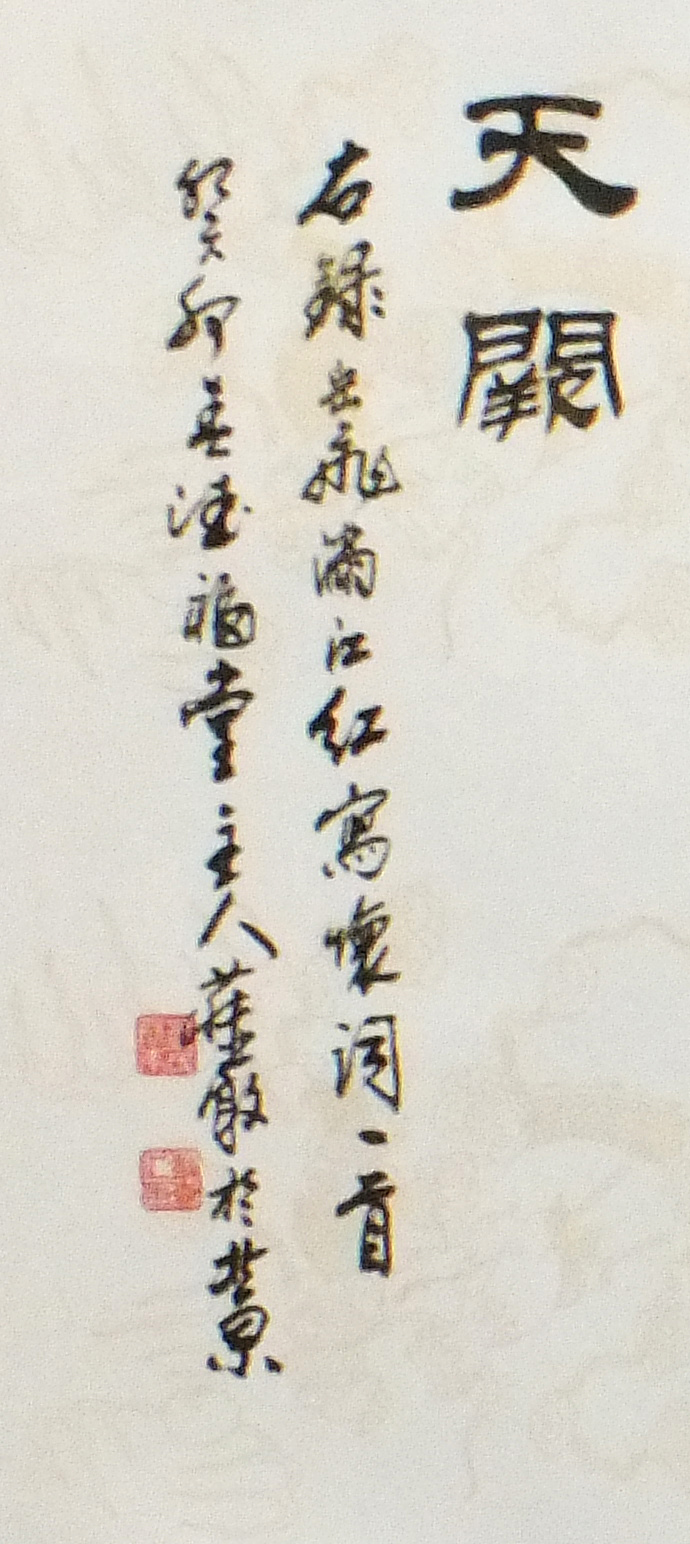 天闕
右錄岳飛滿江紅寫懷詞一首
癸卯孟 福堂主人 敬於 京